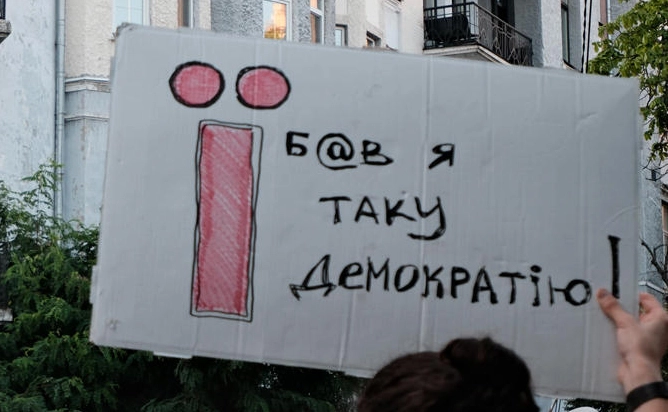 Ї Б@В Я
ТАКУ
ДЕМОКРАТІЮ!